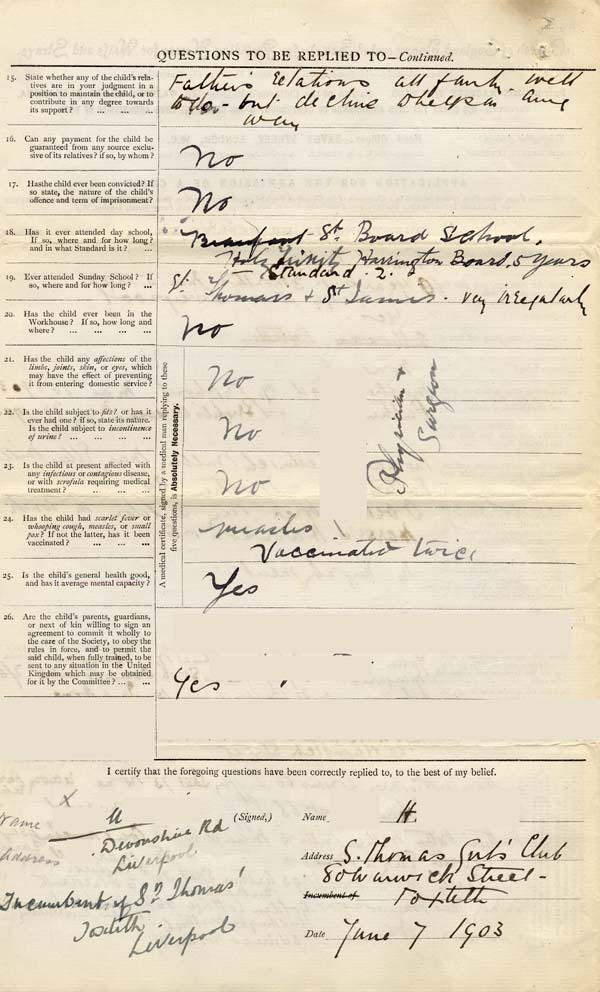 QUESTIONS TO BE REPLIED TO—Continued.
15. State whether any of the child's rela-
tives are in your judgment in a
position to maintain the child, or to
contribute in any degree towards
its support? ... ... ...
Father's relations all fairly well
to do - but decline to help in any
way
16. Can any payment for the child be
guaranteed from any source exclu-
sive of its relatives? if so, by whom?
No
17. Has the child ever been convicted? If
so state, the nature of the child's
offence and term of imprisonment?
No
18. Has it ever attended day school,
If so, where and for how long?
and in what Standard is it? ...
Beaufort St. Board School.
Holy Trinity Harrington Board. 5 years
Standard. 2.
19. Ever attended Sunday School? If
so, where and for how long? ...
St. Thomas's & St James. very irregularly
20. Has the child ever been in the
Workhouse? If so, how long and
where? ... ... ... ...
No
A medical certificate, signed by a medical man replying to these
five questions, is Absolutely Necessary.
21. Has the child any affections of the
limbs, joints, skin, or eyes, which
may have the effect of preventing
it from entering domestic service?
No
22. Is the child subject to fits? or has it
ever had one? if so, state its nature.
Is the child subject to incontinence
of urine? ... ... ... ...
No
23. Is the child at present affected with
any infectious or contagious disease,
or with scrofula requiring medical
treatment? ... ... ...
No
24. Has the child had scarlet fever or
whooping cough, measles, or small
pox? If not the latter, has it been
vaccinated? ... ... ...
Measles
Vaccinated twice
Physician &
Surgeon
25. Is the child's general health good,
and has it average mental capacity?
Yes
26. Are the child's parents, guardians,
or next of kin willing to sign an
agreement to commit it wholly to
the care of the Society, to obey the
rules in force, and to permit the
said child, when fully trained, to be
sent to any situation in the United
Kingdom which may be obtained
for it by the Committee? ... ...
Yes
I certify that the foregoing questions have been correctly replied to, to the best of my belief.
X
Name
Address
Devonshire Rd
Liverpool
Incumbent of St Thomas'
Toxteth
Liverpool
(Signed,) Name H.
Address S. Thomas Girl's Club
80 Warwick Street -
Incumbent of Toxteth
Date June 7 1903